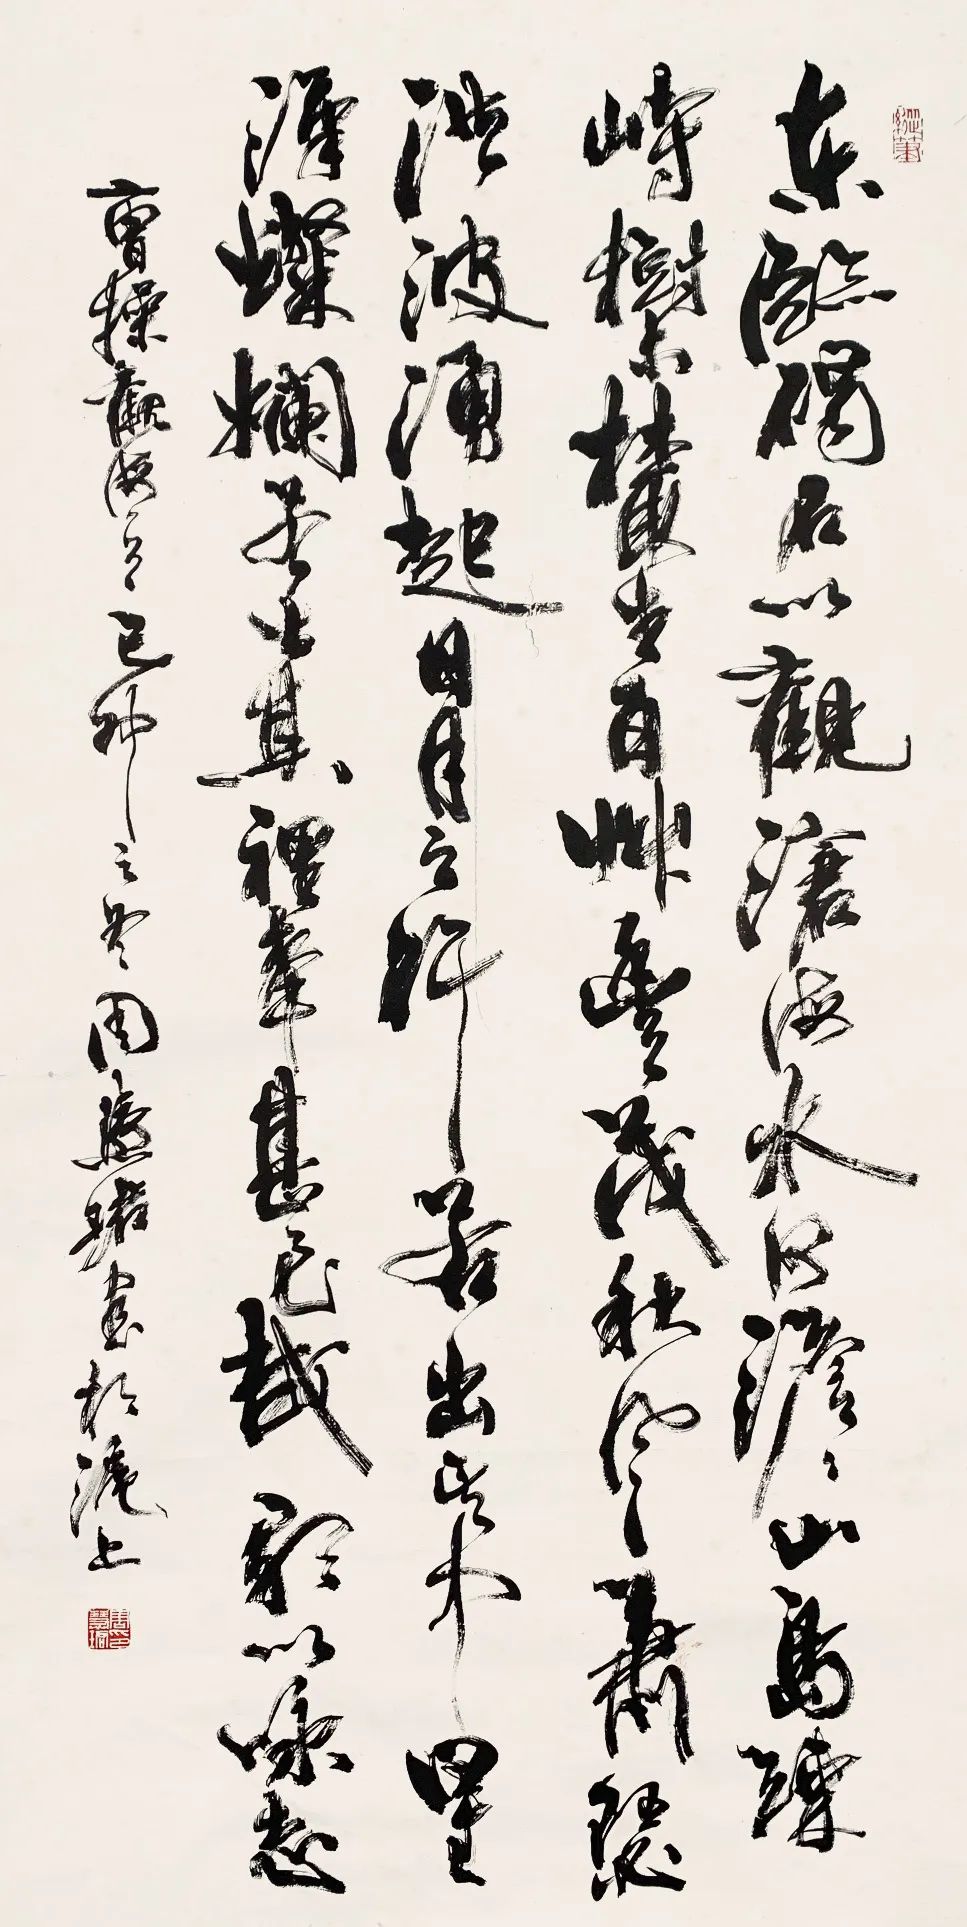 東臨碣石以觀滄海水何澹〻山島竦
峙樹木叢生百艸豐茂秋風蕭瑟
洪波湧起日月之行若出其中星
漢燦爛若出其裡幸甚至哉歌以詠志
曹操觀海 己卯之冬周慧珺書於滬上